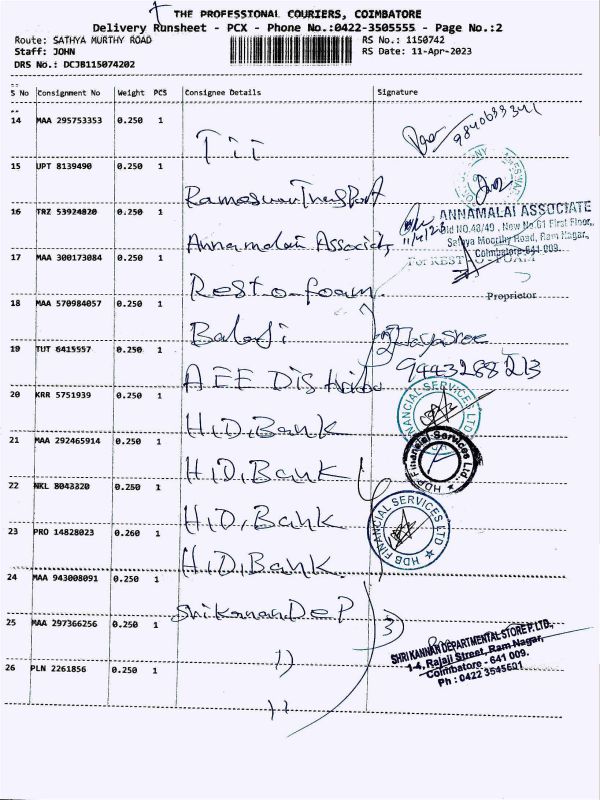 THE PROFESSIONAL COURIERS, COIMBATORE
Delivery Runsheet - PCX - Phone No.:0422-3505555 - Page No.:2
Route: SATHYA MURTHY ROAD RS No.: 1150742
Staff: JOHN RS Date: 11-Apr-2023
DRS No.: DCJB115074202
S No Consignment No Weight PCS Consignee Details Signature
14 MAA 295753353 0.250 1 Tii
15 UPT 8139490 0.250 1 Rameswari Transport
16 TRZ 53924820 0.250 1 Annamalai Associates
11/4/23
ANNAMALAI ASSOCIATE
Old NO.48/49, New No.61 First Floor,
Sathya Moorthy Road, Ram Nagar,
Coimbatore-641 009.
17 MAA 300173084 0.250 1 Rest-o-foam
For REST-O-FOAM
Proprietor
18 MAA 570984057 0.250 1 Balaji
Jayashree
19 TUT 6415557 0.250 1 AEE Distributo
9443288213
20 KRR 5751939 0.250 1 H.D.Bank
FINANCIAL SERVICES LTD
21 MAA 292465914 0.250 1 H.D.Bank
HDB Financial Services Ltd.
22 NKL 8043320 0.250 1 H.D.Bank
23 PRO 14828023 0.260 1 H.D.Bank
HDB FINANCIAL SERVICES LTD
24 MAA 943008091 0.250 1 Shrikannan DeP
25 MAA 297366256 0.250 1 11
3)
SHRI KANNAN DEPARTMENTAL STORE P. LTD.,
1-4, Rajaji Street, Ram Nagar,
Coimbatore - 641 009.
Ph : 0422 3545601
26 PLN 2261856 0.250 1 11